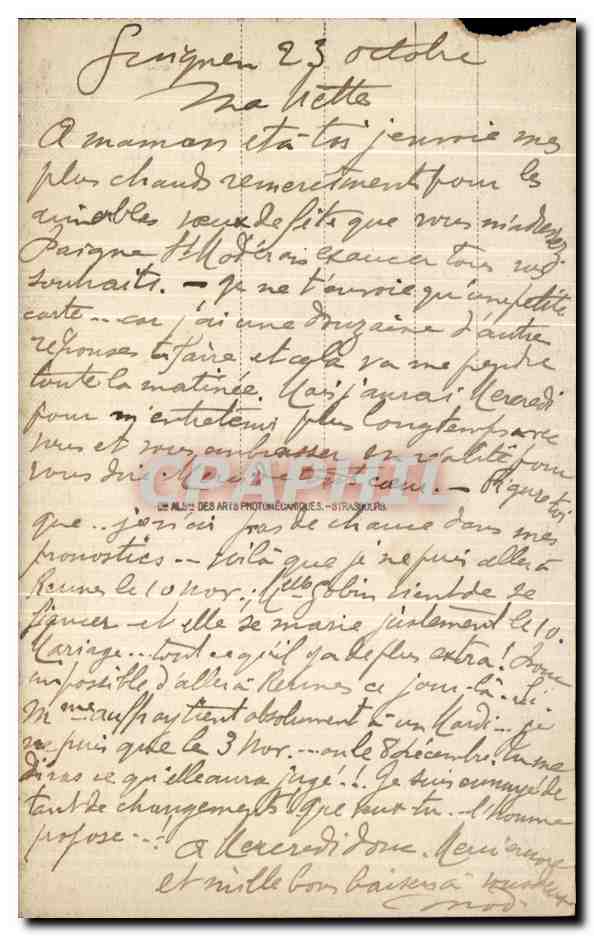 Guignen 23 octobre
Ma Nette
A maman et à toi j'envoie mes
plus chauds remerciements pour les
aimables vœux de fête que vous m'adressez.
Daigne St Modéran exaucer tous vos
souhaits. - Je ne t'envoie qu'une petite
carte... car j'ai une douzaine d'autre
réponses à faire et cela va me prendre
toute la matinée. Mais j'aurai Mercredi
pour m'entretenir plus longtemps avec
vous et vous embrasser en réalité pour
vous dire Merci de tout cœur. - Figure toi
CAPHIL
Cie ALSne DES ARTS PHOTOMÉCANIQUES. - STRASBOURG.
que.. je n'ai pas de chance dans mes
pronostics - voilà que je ne puis aller à
Rennes le 10 nov.; Mlle Gobin vient de se
fiancer - et elle se marie justement le 10.
Mariage... tout ce qu'il y a de plus extra! Donc
impossible d'aller à Rennes ce jour-là. Si
Mme Auffray tient absolument à un Mardi... je
ne puis que le 3 Nov. - ou le 8 décembre. Tu me
diras ce qu'elle aura jugé!! Je suis ennuyé de
tant de changements que veux-tu.. l'homme
propose...!
A Mercredi donc. Merci encore
et mille bons baisers à vous deux
Mod.